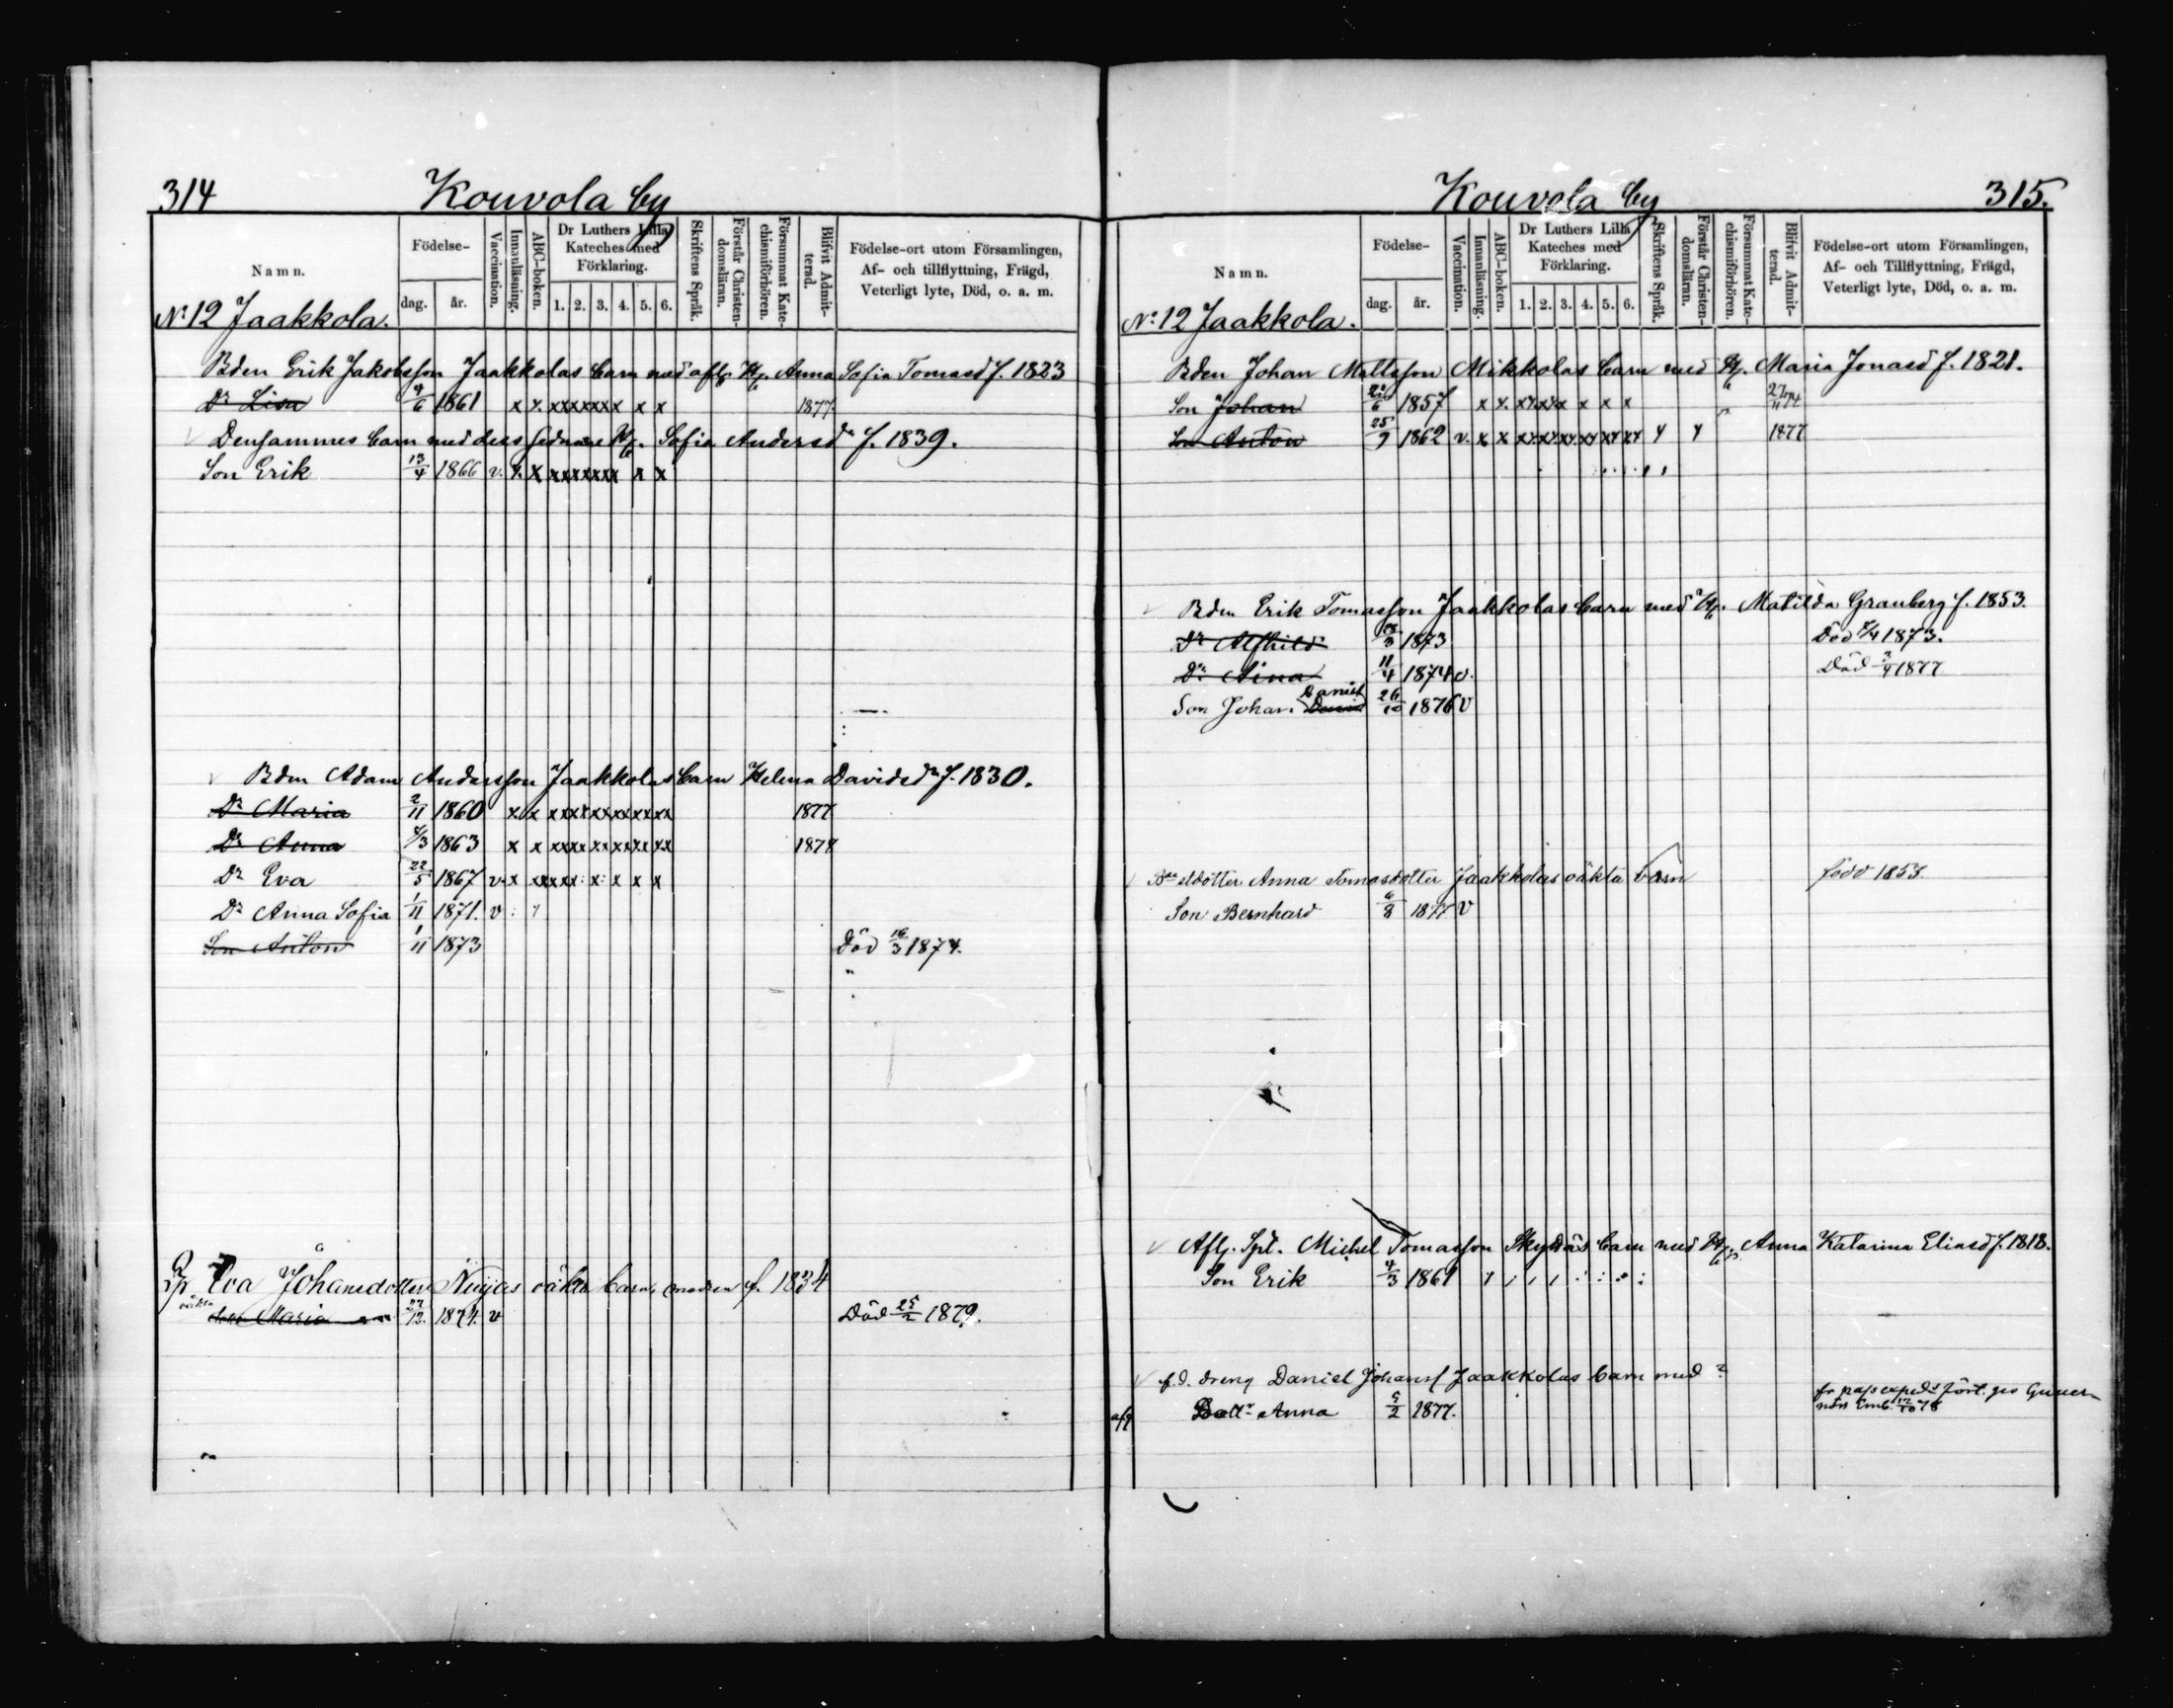 314 Kouvola by
Namn. Födelse- dag. år. Vaccination. Innanläsning. ABC-boken. Dr Luthers Lilla Kateches med Förklaring. 1. 2. 3. 4. 5. 6. Skriftens Språk. Förstår Christendomsläran. Försummat Katechismiförhören. Blifvit Admitterad. Födelse-ort utom Församlingen, Af- och tillflyttning, Frägd, Veterligt lyte, Död, o. a. m.
No 12 Jaakkola.
Bden Erik Jakobsson Jaakkolas barn med afl. H. Anna Sofia Tomasd f. 1823
Dr Lisa 9/6 1861 x x. xxxxxxx x x 1877
Densammes barn med dess sednare H. Sofia Andersdr f. 1839.
Son Erik 13/4 1866 v. x. x xxxxxxx x x
Bden Adam Andersson Jaakkolas barn Helena Davidsdr f. 1830.
Dr Maria 2/11 1860 x x xxxxxxxxxxxx 1877
Dr Anna 4/3 1863 x x xxxx xx xxxx xx 1878
Dr Eva 22/5 1867 v x xxxxx: x: x x x
Dr Anna Sofia 1/11 1871. v
Son Anton 1/11 1873 Död 16/3 1874.
Eva Johansdotter Nuijas oäkta barn, modren f. 1834
oäkta Maria 27/12. 1874. v Död 25/2 1879.
Kouvola by 315.
Namn. Födelse- dag. år. Vaccination. Innanläsning. ABC-boken. Dr Luthers Lilla Kateches med Förklaring. 1. 2. 3. 4. 5. 6. Skriftens Språk. Förstår Christendomsläran. Försummat Katechismiförhören. Blifvit Admitterad. Födelse-ort utom Församlingen, Af- och Tillflyttning, Frägd, Veterligt lyte, Död, o. a. m.
No 12 Jaakkola.
Bden Johan Mattsson Mikkolas barn med H. Maria Jonasd f. 1821.
Son Johan 1857 x x. xxxx x x x x 27/11 74
Son Anton 25/9 1862 v. x x xxxxxxxxxxxx x x 1877
Bden Erik Tomasson Jaakkolas barn med H. Matilda Granberg f. 1853.
Dr Alfhild 1873 Död 1873.
Dr Aina 11/4 1874 v. Död 1877
Son Johan Daniel 26/10 1876 v
Anna Tomasdotter Jaakkolas oäkta barn född 1853.
Son Bernhard 6/8 1877 v
Aflj. Spt. Michel Tomasson Skyttäs barn med H. Anna Katarina Eliasd f. 1818.
Son Erik 4/3 1861
f.d. dreng Daniel Johanss Jaakkolas barn med ?
afl Dottr Anna 5/2 1877.